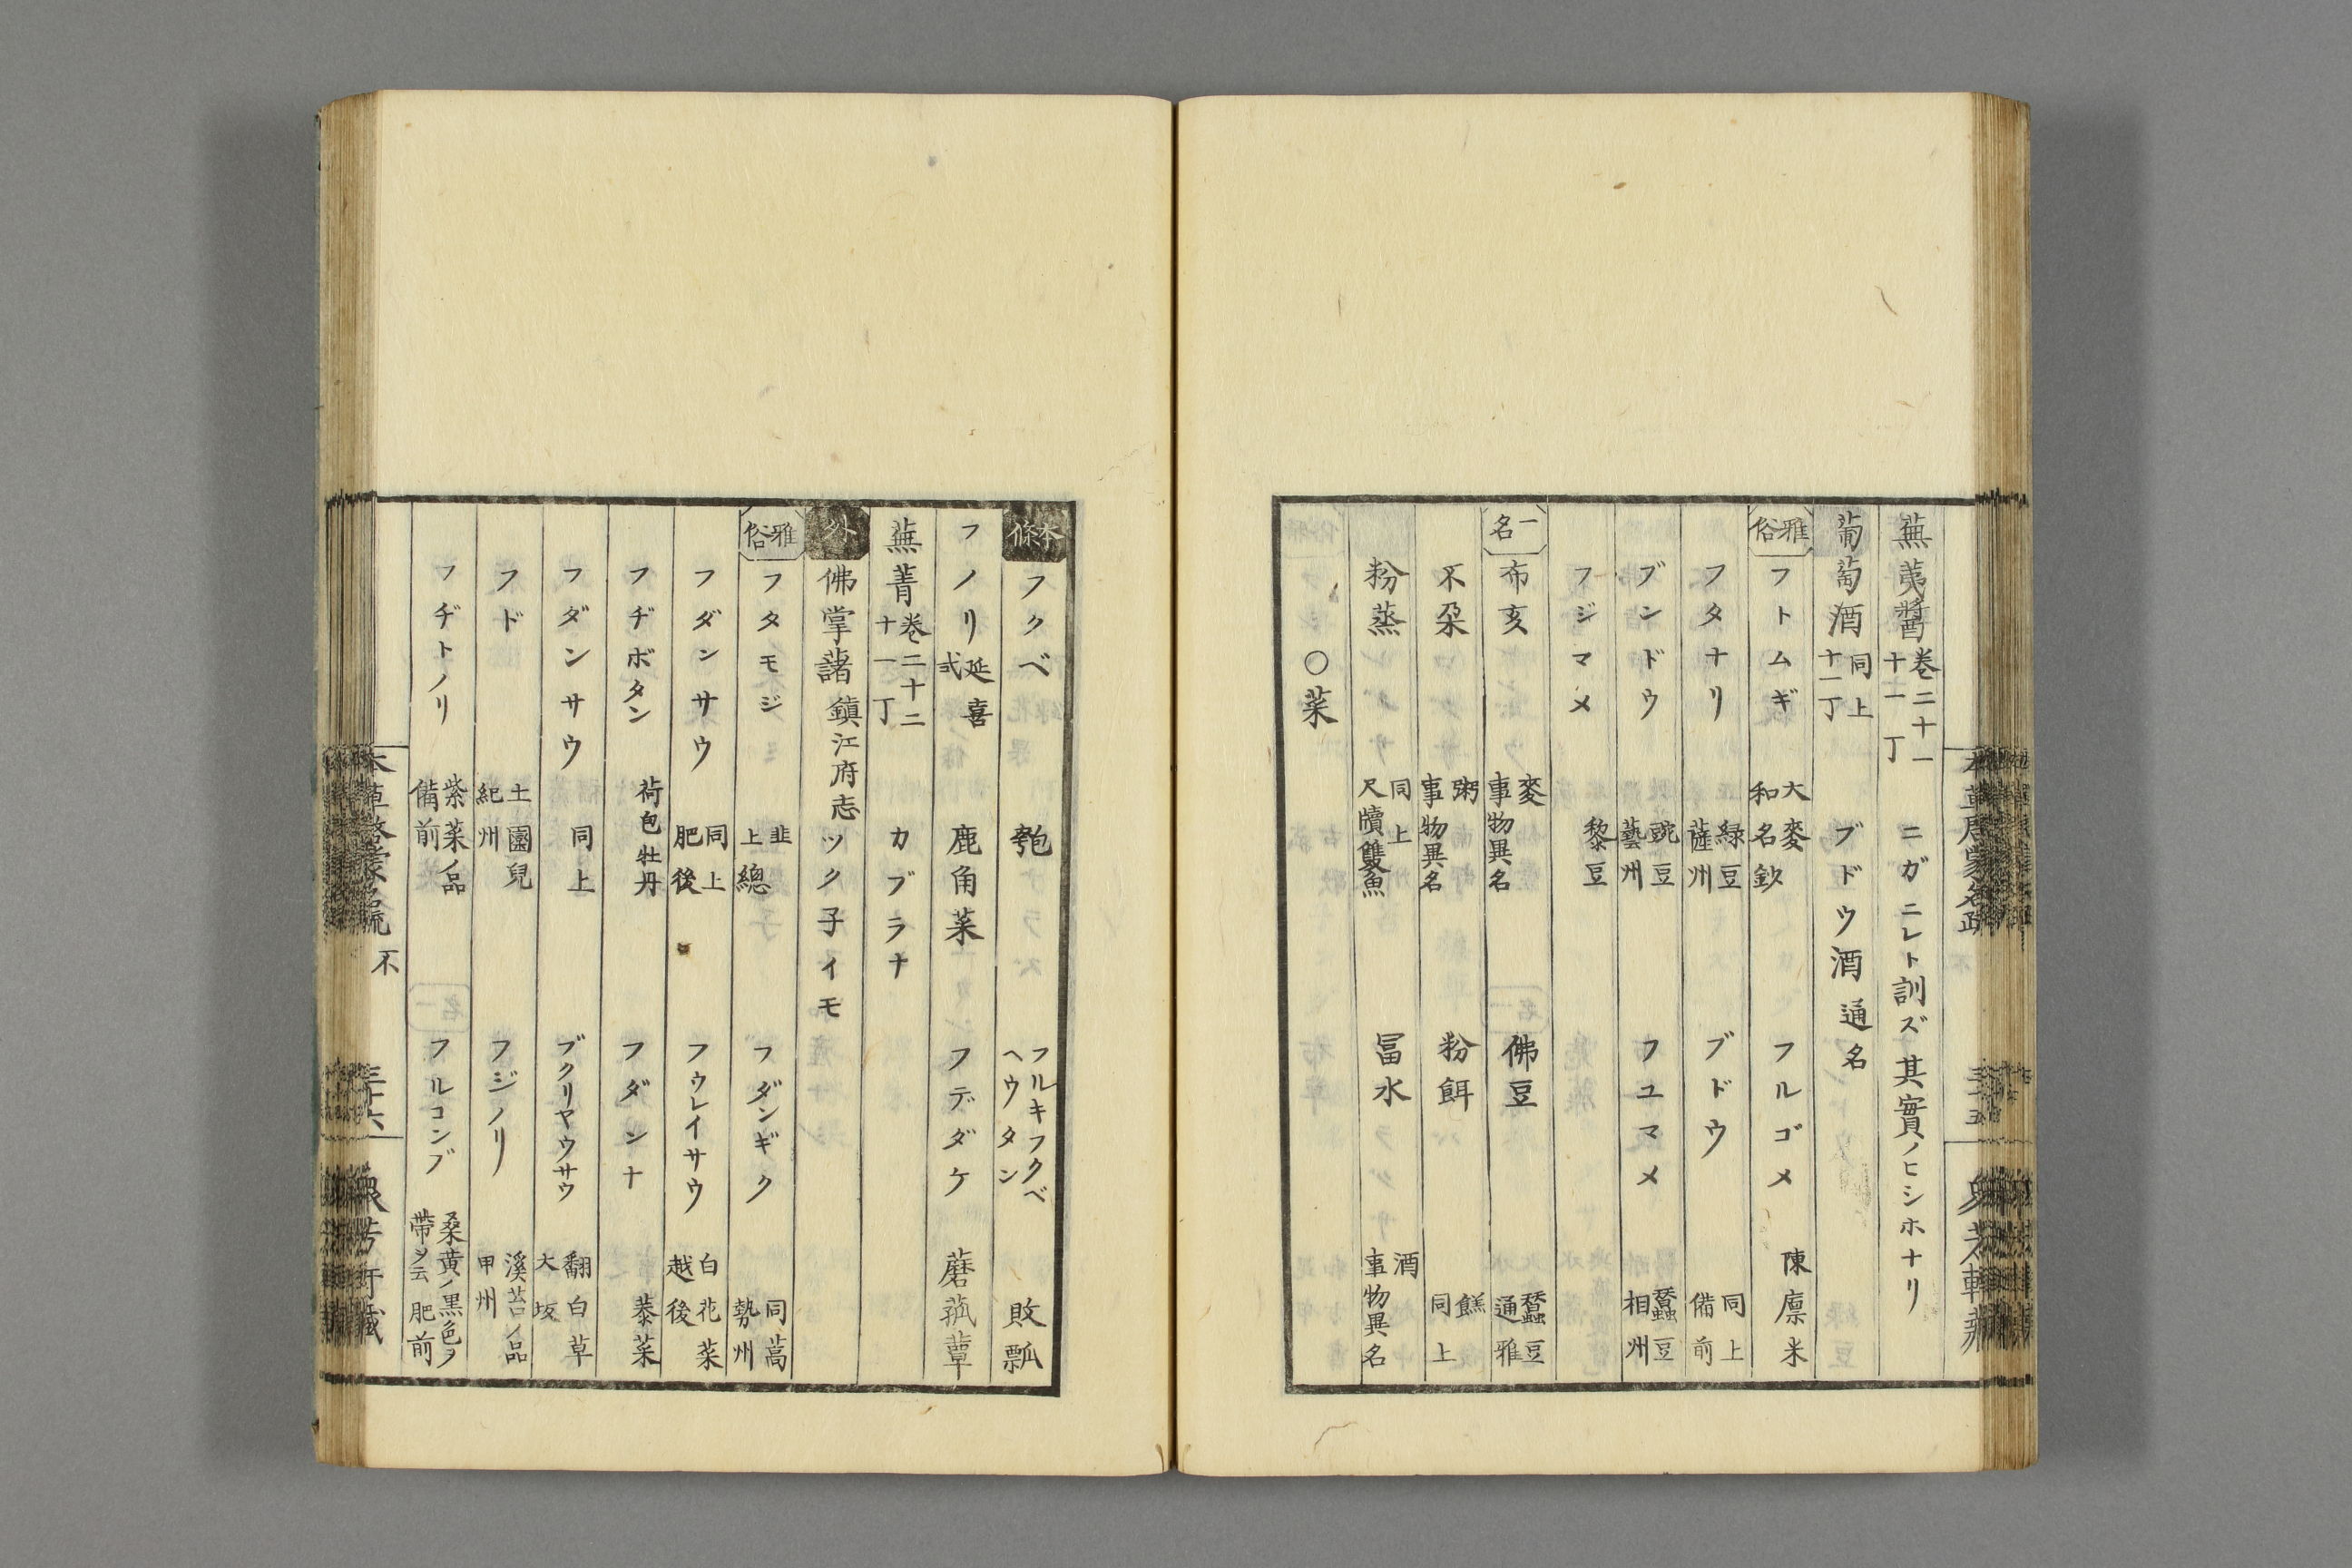 蕪荑醬 卷二十一 十一丁 ニガニレト訓ズ其實ノヒシホナリ
葡萄酒 同上 十一丁 ブドウ酒 通名
雅俗 フトムギ 大麥 和名鈔 フルゴメ 陳廪米
フタナリ 緑豆 薩州 ブドウ 同上 備前
ブンドウ 豌豆 藝州 フユマメ 蠶豆 相州
フジマメ 黎豆
一名 布亥 麥 事物異名 佛豆 蠶豆 通雅
不朶 粥 事物異名 粉餌 餻 同上
粉蒸 同上 尺牘雙魚 冨水 酒 事物異名
○菜
本條 フクベ 匏 フルキフクベ ヘウタン 敗瓢
フノリ 延喜式 鹿角菜 フデダケ 蘑菰蕈
蕪菁 卷二十二 十一丁 カブラナ
外 佛掌藷 鎮江府志 ツク子イモ
雅俗 フタモジ 韭 上總 フダンギク 同蒿 勢州
フダンサウ 同上 肥後 フウレイサウ 白花菜 越後
フヂボタン 荷包牡丹 フダンナ 菾菜
フダンサウ 同上 ブクリヤウサウ 翻白草 大坂
フド 土圞兒 紀州 フジノリ 溪苔ノ品 甲州
フヂトノリ 紫菜ノ品 備前 フルコンブ 桑黄ノ黒色ヲ帶ヲ云 肥前
本草啓蒙名疏 不 三十六 衆芳軒藏